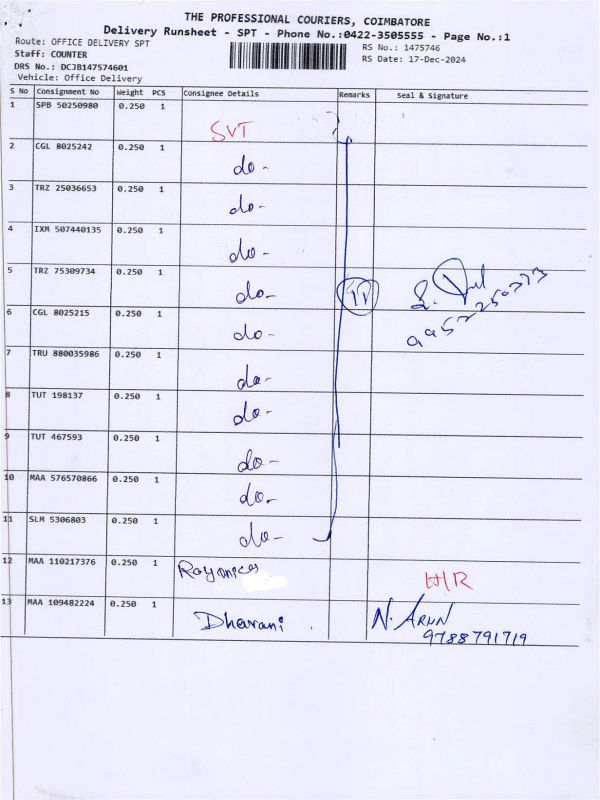 THE PROFESSIONAL COURIERS, COIMBATORE
Delivery Runsheet - SPT - Phone No.:0422-3505555 - Page No.:1
Route: OFFICE DELIVERY SPT
RS No.: 1475746
Staff: COUNTER
RS Date: 17-Dec-2024
DRS No.: DCJB147574601
Vehicle: Office Delivery
S No Consignment No Weight PCS Consignee Details Remarks Seal & Signature
1 SPB 50250980 0.250 1
SVT
2 CGL 8025242 0.250 1
do-
3 TRZ 25036653 0.250 1
do-
4 IXM 507440135 0.250 1
do-
5 TRZ 75309734 0.250 1
do-
6 CGL 8025215 0.250 1
do-
7 TRU 880035986 0.250 1
do-
8 TUT 198137 0.250 1
do-
9 TUT 467593 0.250 1
do-
10 MAA 576570866 0.250 1
do-
11 SLM 5306803 0.250 1
do-
12 MAA 110217376 0.250 1
H/R
13 MAA 109482224 0.250 1
Dharani N. ARUN
9788791719